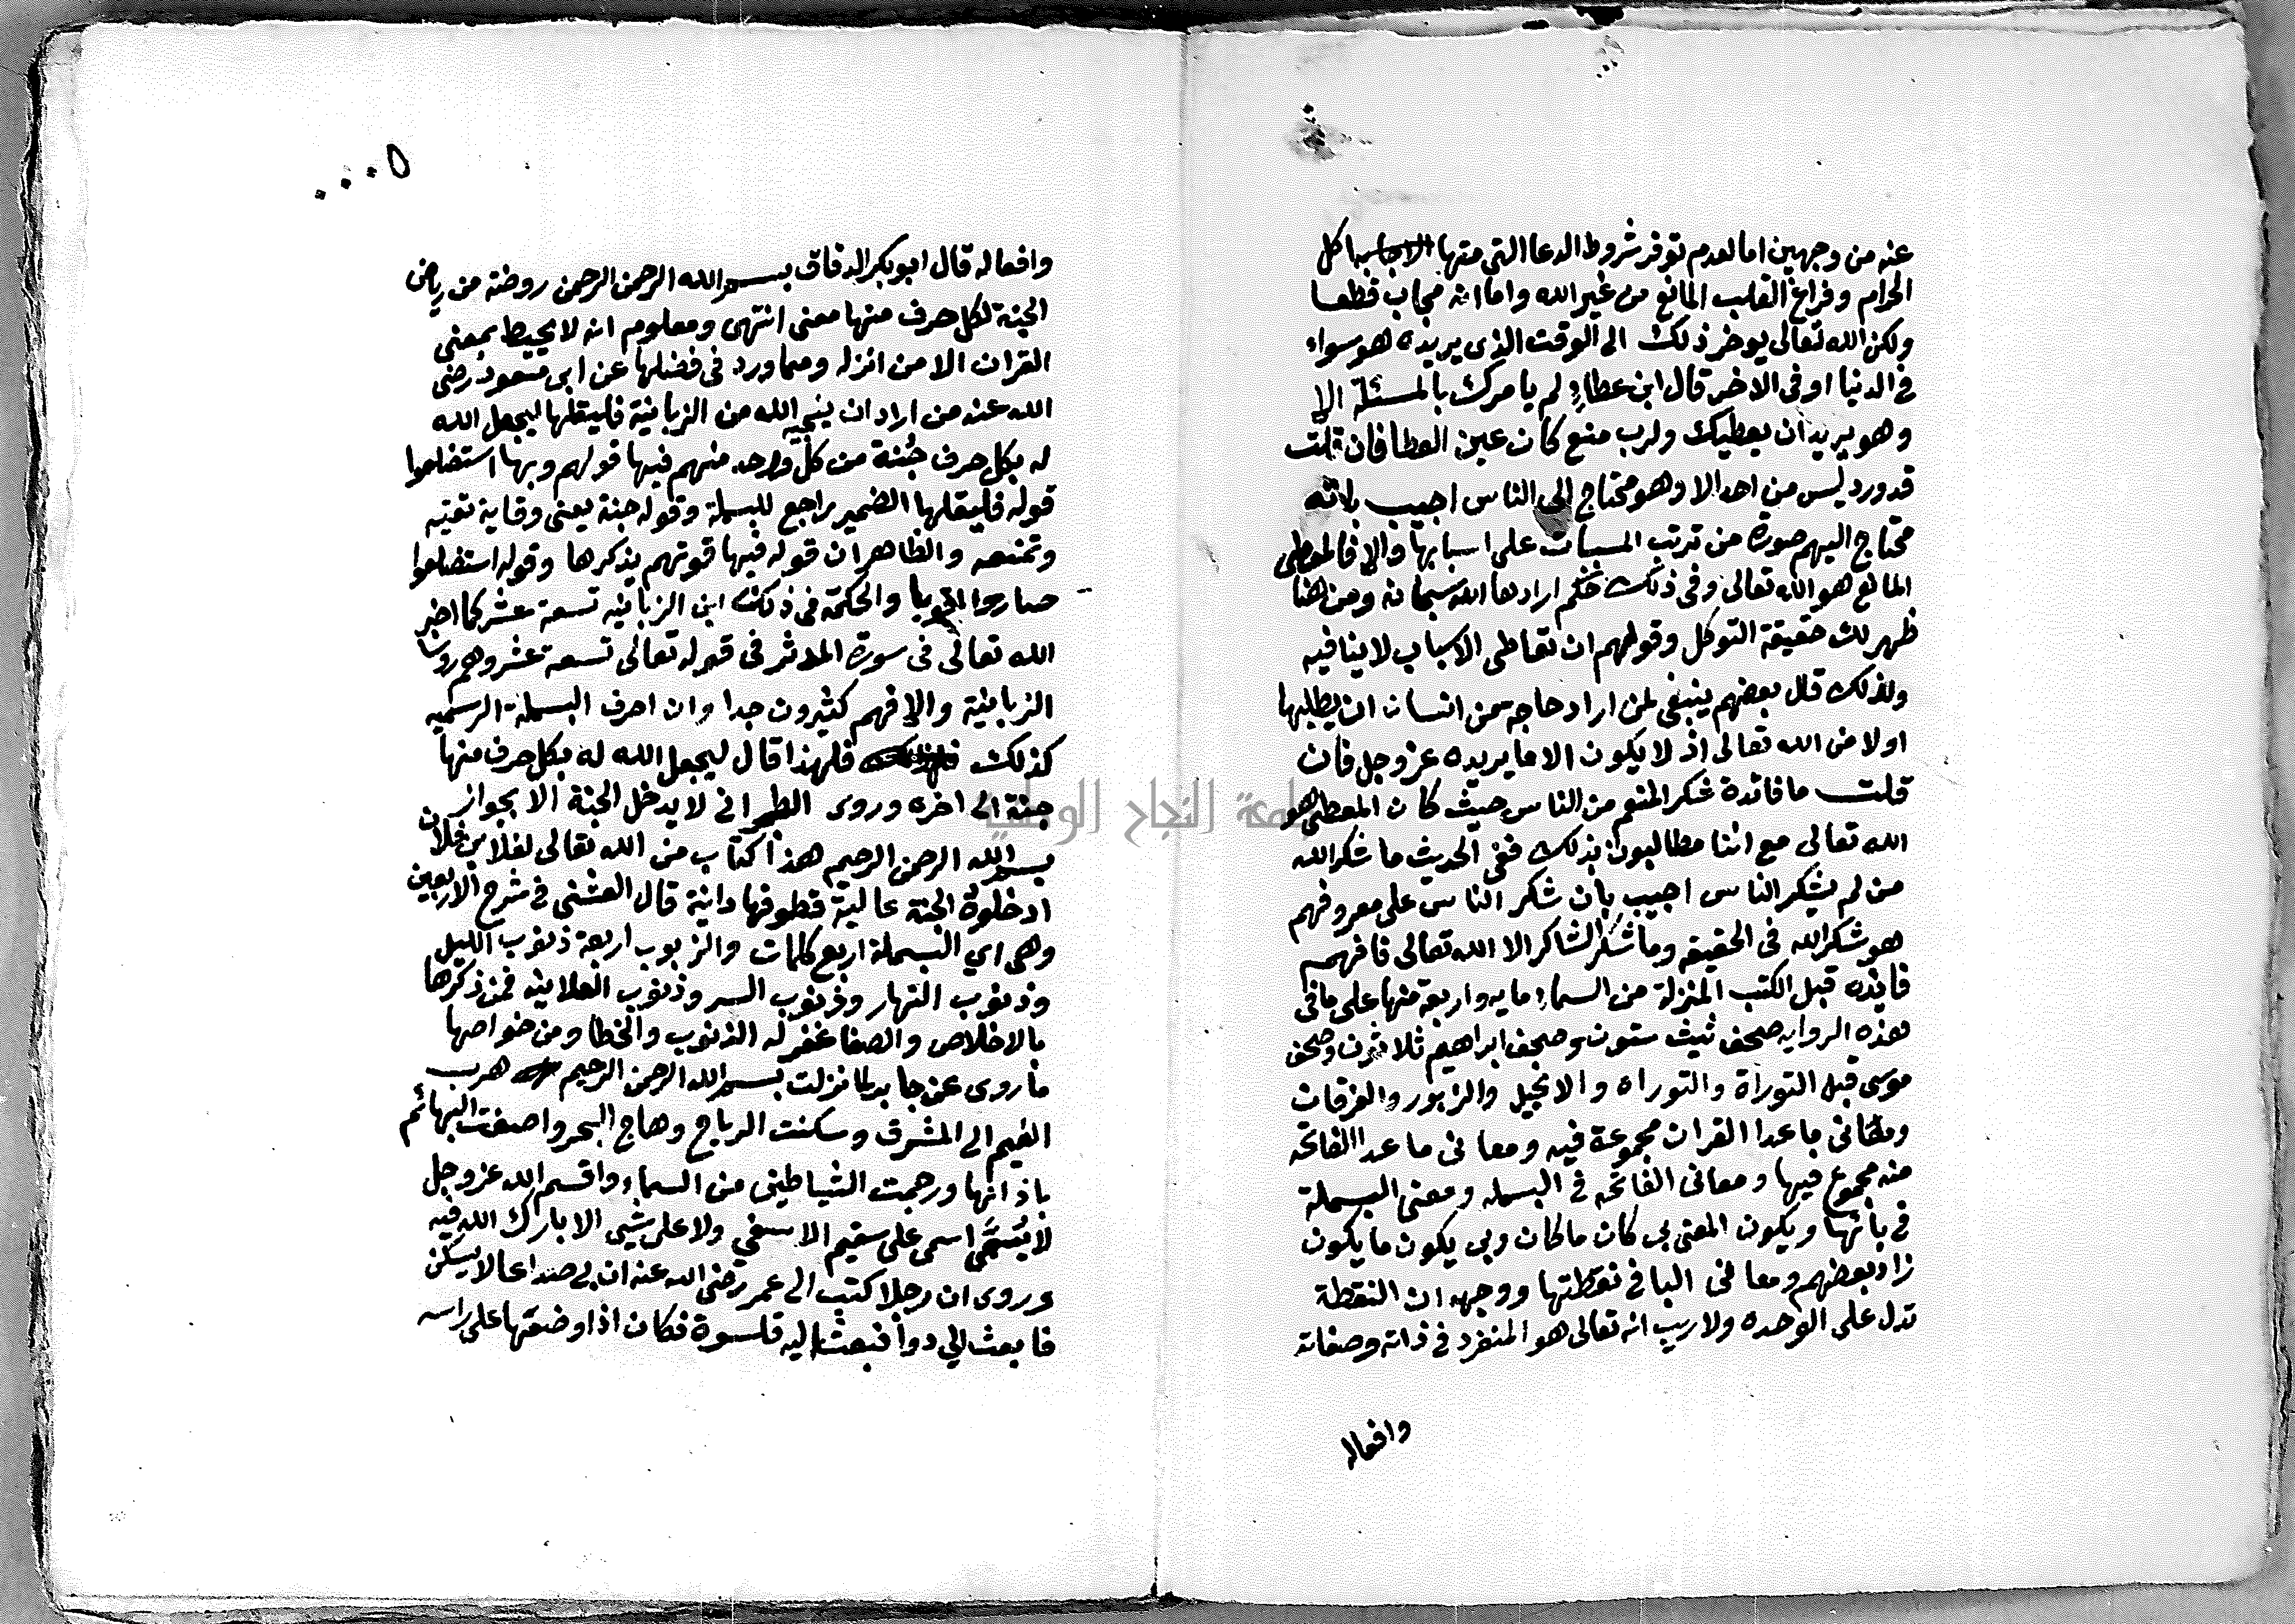 عنه من وجهين اما لعدم توفر شروط الدعا التي منها اكل
الحرام وفراغ القلب المانع من غير الله واما انه مجاب قطعا
ولكن الله تعالى يوخر ذلك الى الوقت الذى يريده هو سواء
في الدنيا او في الاخر قال ابن عطاء لم يامرك بالمسئلة الا
وهو يريد ان يعطيك ولرب منع كان عين العطا فان قلت
قد ورد ليس من احد الا وهو محتاج الى الناس اجيب بانه
محتاج اليهم صورة من ترتب المسببات على اسبابها والا فالمعطي
المانع هو الله تعالى وفي ذلك حكم ارادها الله سبحانه ومن هنا
ظهر لك حقيقة التوكل وقولهم ان تعاطى الاسباب لا ينافيه
ولذلك قال بعضهم ينبغي لمن اراد حاجة من انسان ان يطلبها
اولا من الله تعالى اذ لا يكون الا ما يريده عز وجل فان
قلت ما فائدة شكر المنعم من الناس حيث كان المعطى هو
الله تعالى مع اننا مطالبون بذلك ففي الحديث ما شكر الله
من لم يشكر الناس اجيب بان شكر الناس على معروفهم
هو شكر الله فى الحقيقه وما شكر الشاكر الا الله تعالى فافهم
فايده قبل الكتب المنزلة من السماء مايه واربعة منها على ما في
هذه الروايه صحف شيث ستون وصحف ابراهيم ثلاثون وصحف
موسى قبل التوراة والتوراه والانجيل والزبور والفرقان
ومعاني ما عدا القران مجموعة فيه ومعانى ما عدا الفاتحه
منه مجموع فيها ومعانى الفاتحه في البسمله ومعنى البسملة
في بائها ويكون المعنى بى كان ما كان وبى يكون ما يكون
زاد بعضهم ومعانى البا في نقطتها ووجهه ان النقطة
تدل على الوحده ولا ريب انه تعالى هو المنفرد في ذاته وصفاته
وافعاله
٥
وافعاله قال ابو بكر الدقاق بسم الله الرحمن الرحمن روضة من رياض
الجنة لكل حرف منها معنى انتهى ومعلوم انه لا يحيط بمعنى
القران الا من انزله ومما ورد في فضلها عن ابى مسعود رضى
الله عنه من اراد ان ينجيه الله من الزبانية فليقلها ليجعل الله
له بكل حرف جُنة من كل واحد منهم فبها قولهم وبها استضلعوا
قوله فليقلها الضمير راجع للبسملة وقوله جنة يعنى وقاية تقيه
وتمنعه والظاهر ان قوله فبها قوتهم بذكرها وقوله استضلعوا
صاروا اقويا والحكمة فى ذلك ان الزبانيه تسعة عشر كما اخبر
الله تعالى فى سورة المدثر فى قوله تعالى تسعة عشر وهم روسا
الزبانية والا فهم كثيرون جدا وان احرف البسملة الرسميه
كذلك فلهذا قال ليجعل الله له بكل حرف منها
جنة الى اخره وروى الطبراني لا يدخل الجنة الا بجواز
بسم الله الرحمن الرحيم هذا كتاب من الله تعالى لفلان بن فلان
ادخلوة الجنة عالية قطوفها دانية قال الفشنى في شرح الاربعين
وهى اي البسملة اربع كلمات والزبوب اربعة ذنوب الليل
وذنوب النهار وذنوب السر وذنوب العلانيه فمن ذكرها
بالاخلاص والصفا غفر له الذنوب والخطا ومن خواصها
ما روى عن جابر لما نزلت بسم الله الرحمن الرحيم هرب
الغيم الى المشرق وسكنت الرياح وهاج البحر واصغت البهائم
باذانها ورجمت الشياطين من السماء واقسم الله عز وجل
لا يُسَمَّى اسمى على سقيم الا شفي ولا على شيى الا بارك الله فيه
وروى ان رجلا كتب الى عمر رضى الله عنه ان بي صداعا لا يسكن
فابعث الي دوا فبعث اليه قلسوة فكان اذا وضعها على راسه
جامعة النجاح الوطنية